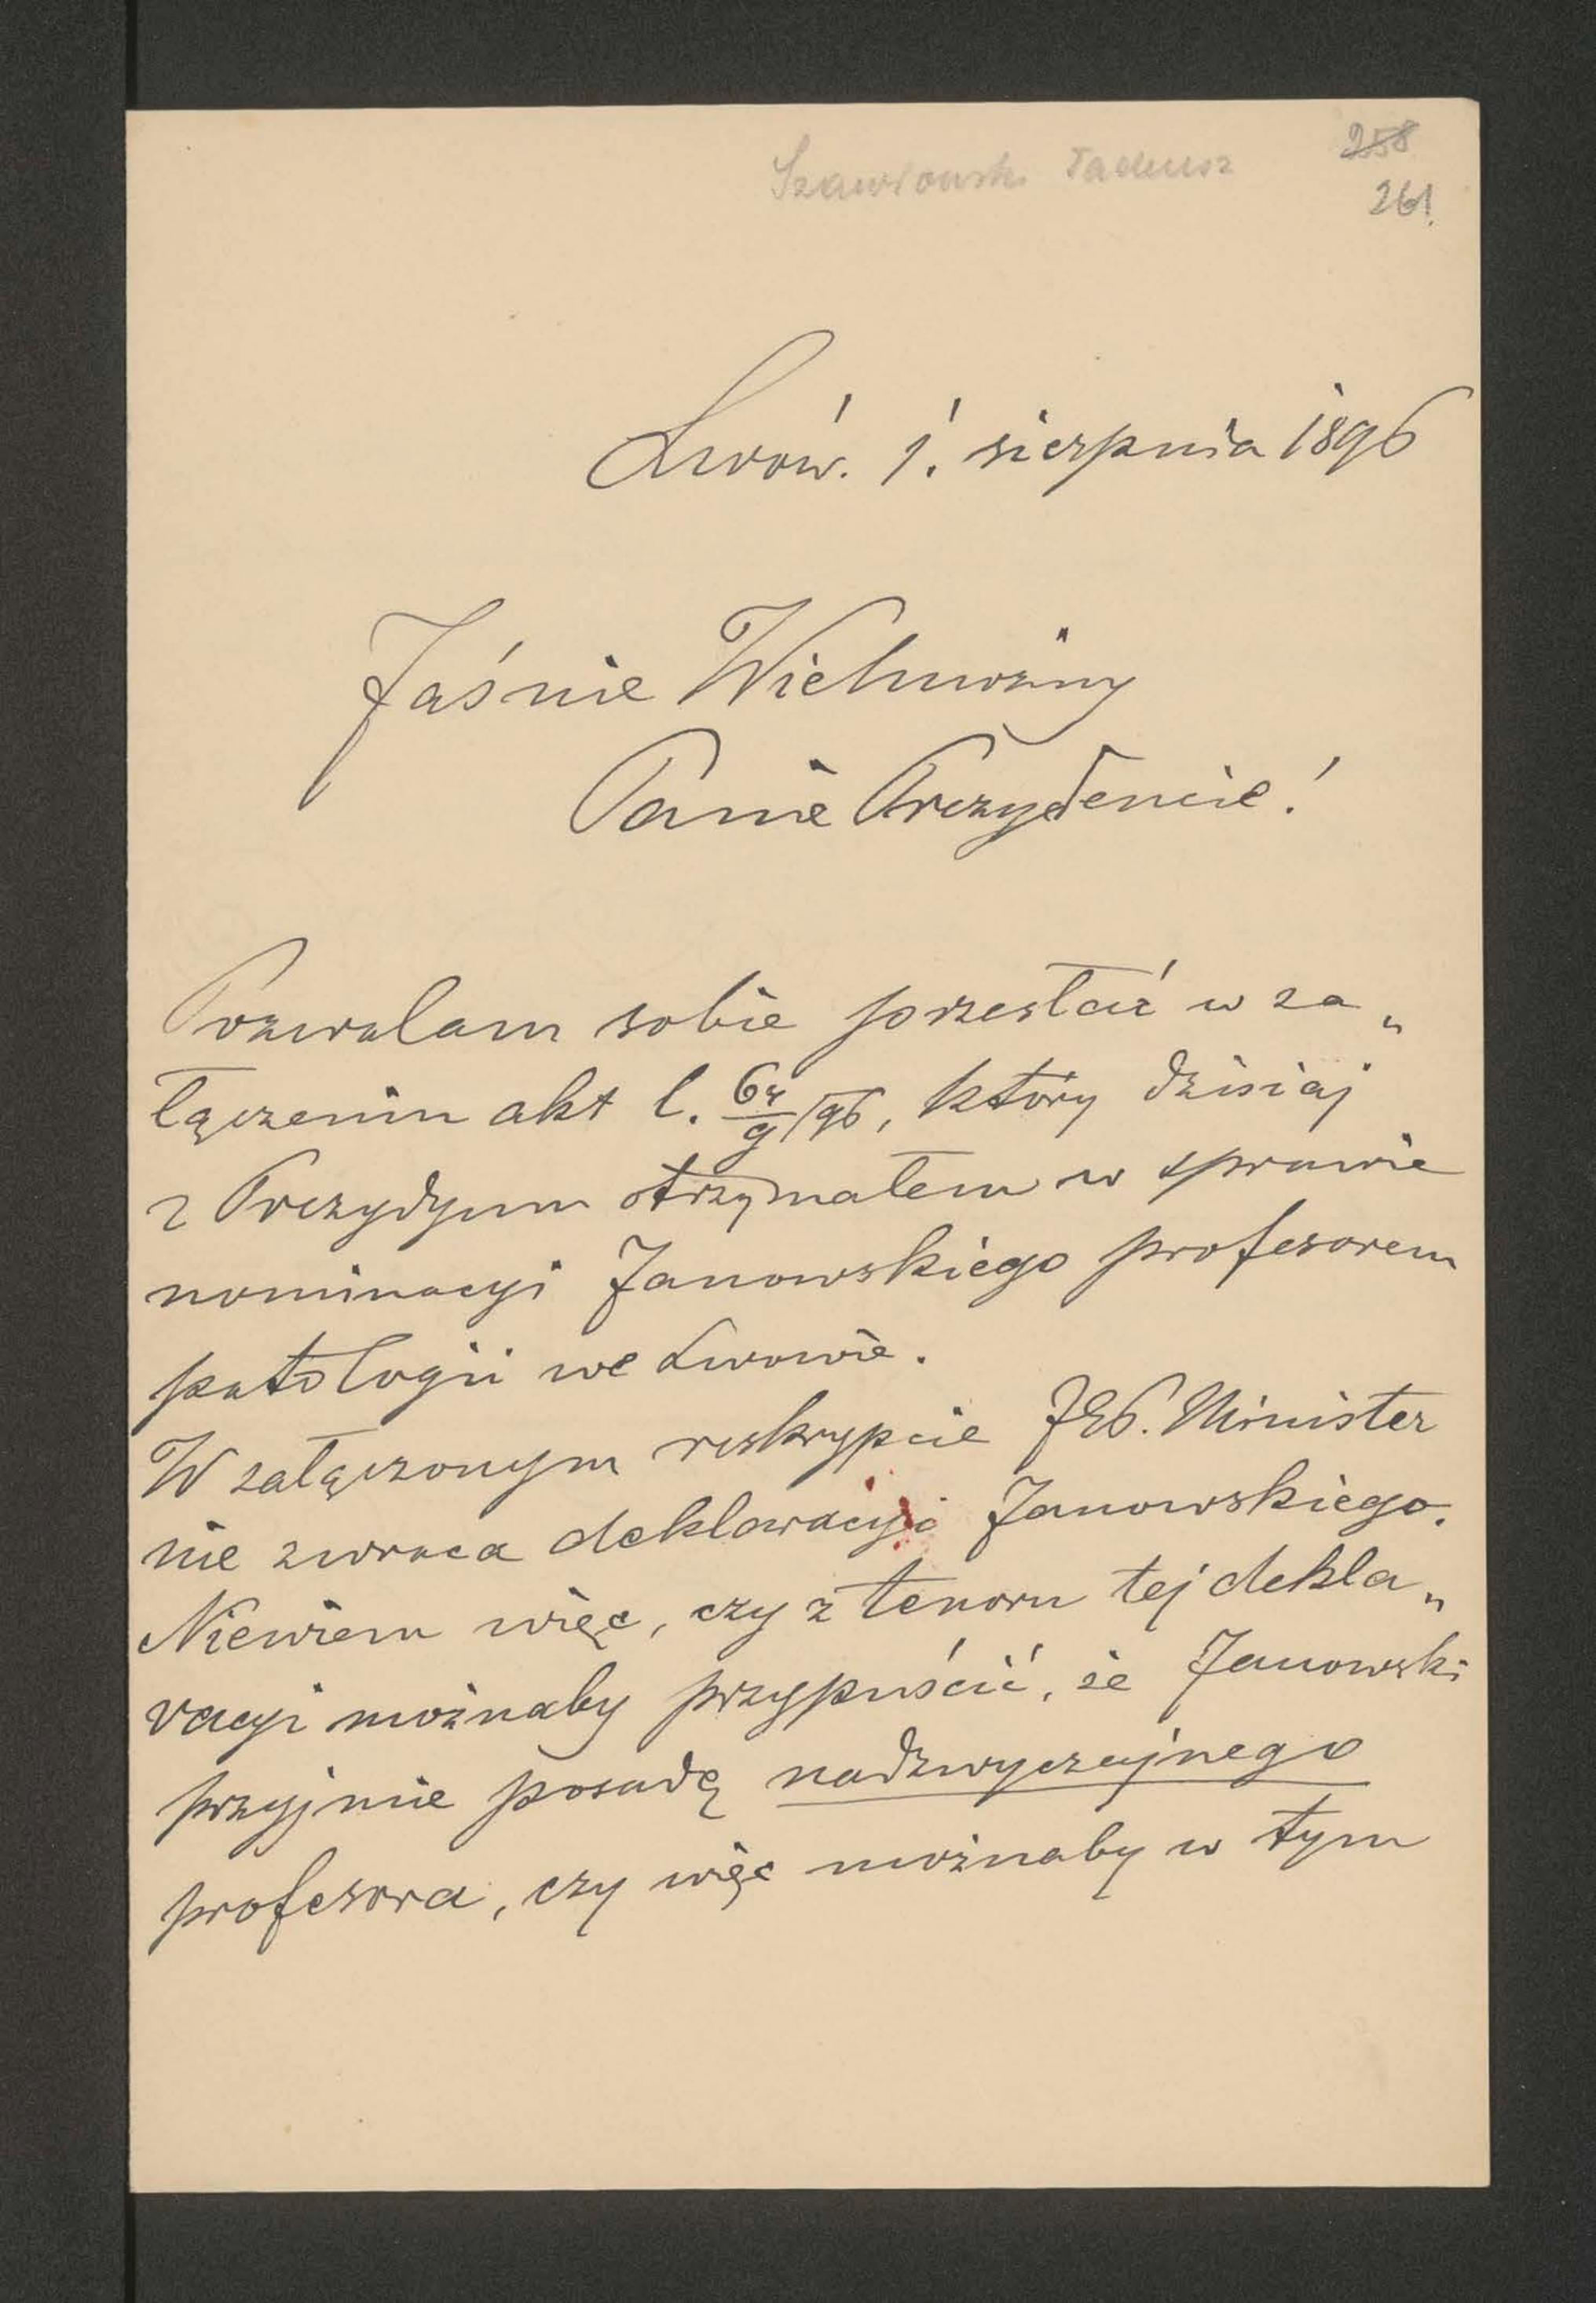 Szawłowski Tadeusz
258
261.
Lwów. 1. sierpnia 1896
Jaśnie Wielmożny
Panie Prezydencie!
Pozwalam sobie przesłać w za„
łączeniu akt l. /96, który dzisiaj
z Prezydyum otrzymałem w sprawie
nominacyi Janowskiego profesorem
patologii we Lwowie.
W załączonym reskrypcie JEP. Minister
nie zwraca deklaracyi Janowskiego.
Niewiem więc, czy z tenoru tej dekla„
racyi możnaby przypuścić, że Janowski
przyjmie posadę nadzwyczajnego
profesora, czy więc możnaby w tym